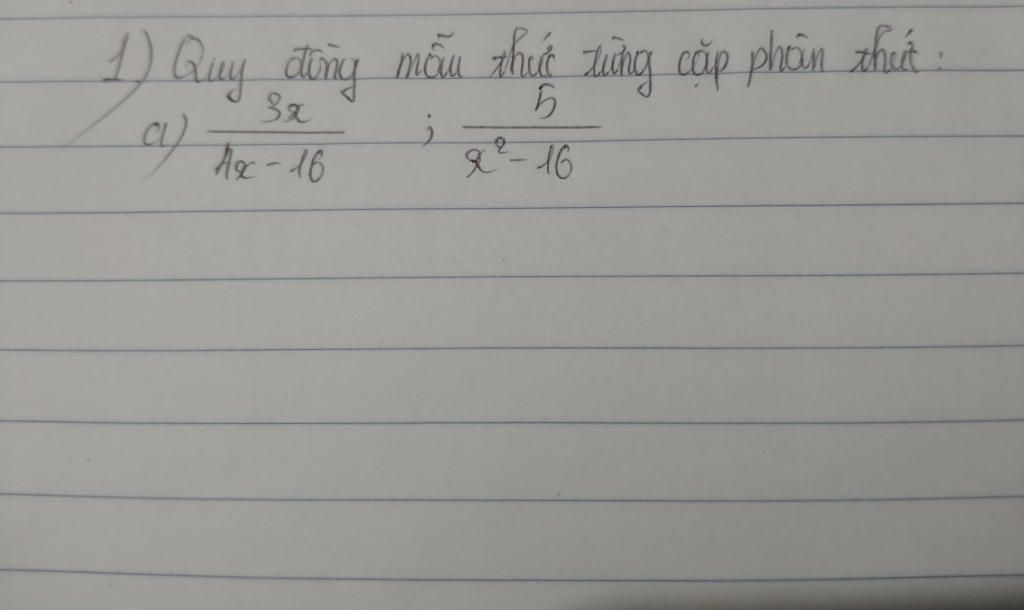 1) Quy đồng mẫu thức từng cặp phân thức:
a) 3x / 4x - 16 ; 5 / x² - 16